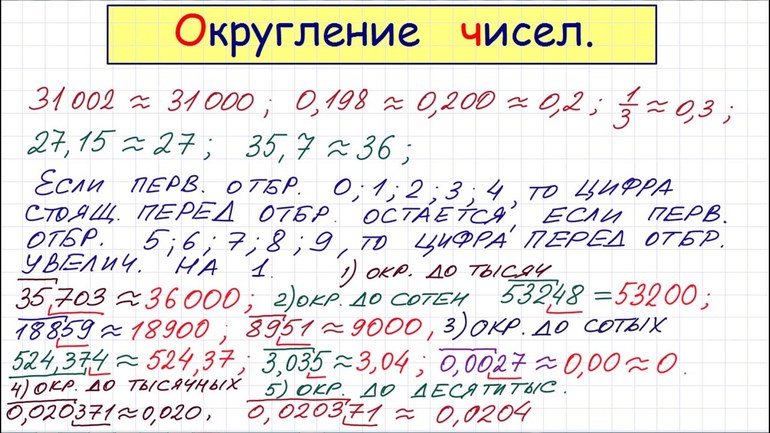 Округление чисел.
31 002 ≈ 31 000; 0,198 ≈ 0,200 ≈ 0,2; 1/3 ≈ 0,3;
27,15 ≈ 27; 35,7 ≈ 36;
ЕСЛИ ПЕРВ. ОТБР. 0; 1; 2; 3; 4, ТО ЦИФРА
СТОЯЩ. ПЕРЕД ОТБР. ОСТАЕТСЯ, ЕСЛИ ПЕРВ.
ОТБР. 5; 6; 7; 8; 9, ТО ЦИФРА ПЕРЕД ОТБР.
УВЕЛИЧ. НА 1. 1) ОКР. ДО ТЫСЯЧ
35 703 ≈ 36 000; 2) ОКР. ДО СОТЕН 53248 = 53200;
18859 ≈ 18900; 8951 ≈ 9000, 3) ОКР. ДО СОТЫХ
524,374 ≈ 524,37; 3,035 ≈ 3,04; 0,0027 ≈ 0,00 ≈ 0.
4) ОКР. ДО ТЫСЯЧНЫХ 5) ОКР. ДО ДЕСЯТИТЫС.
0,020371 ≈ 0,020. 0,020371 ≈ 0,0204